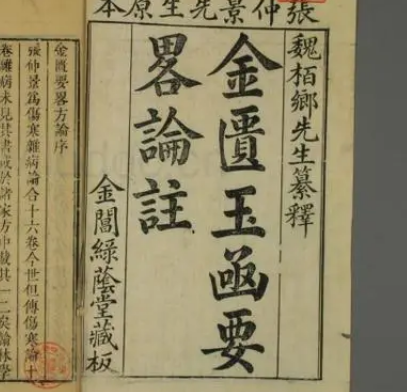 張仲景先生原本
魏栢鄉先生纂釋
金匱玉函要
畧論註
金閶綠蔭堂藏板
金匱要畧方論序
張仲景為傷寒雜病論合十六卷今世但傳傷寒論十
卷雜病未見其書或於諸家方中載其一二矣翰林學